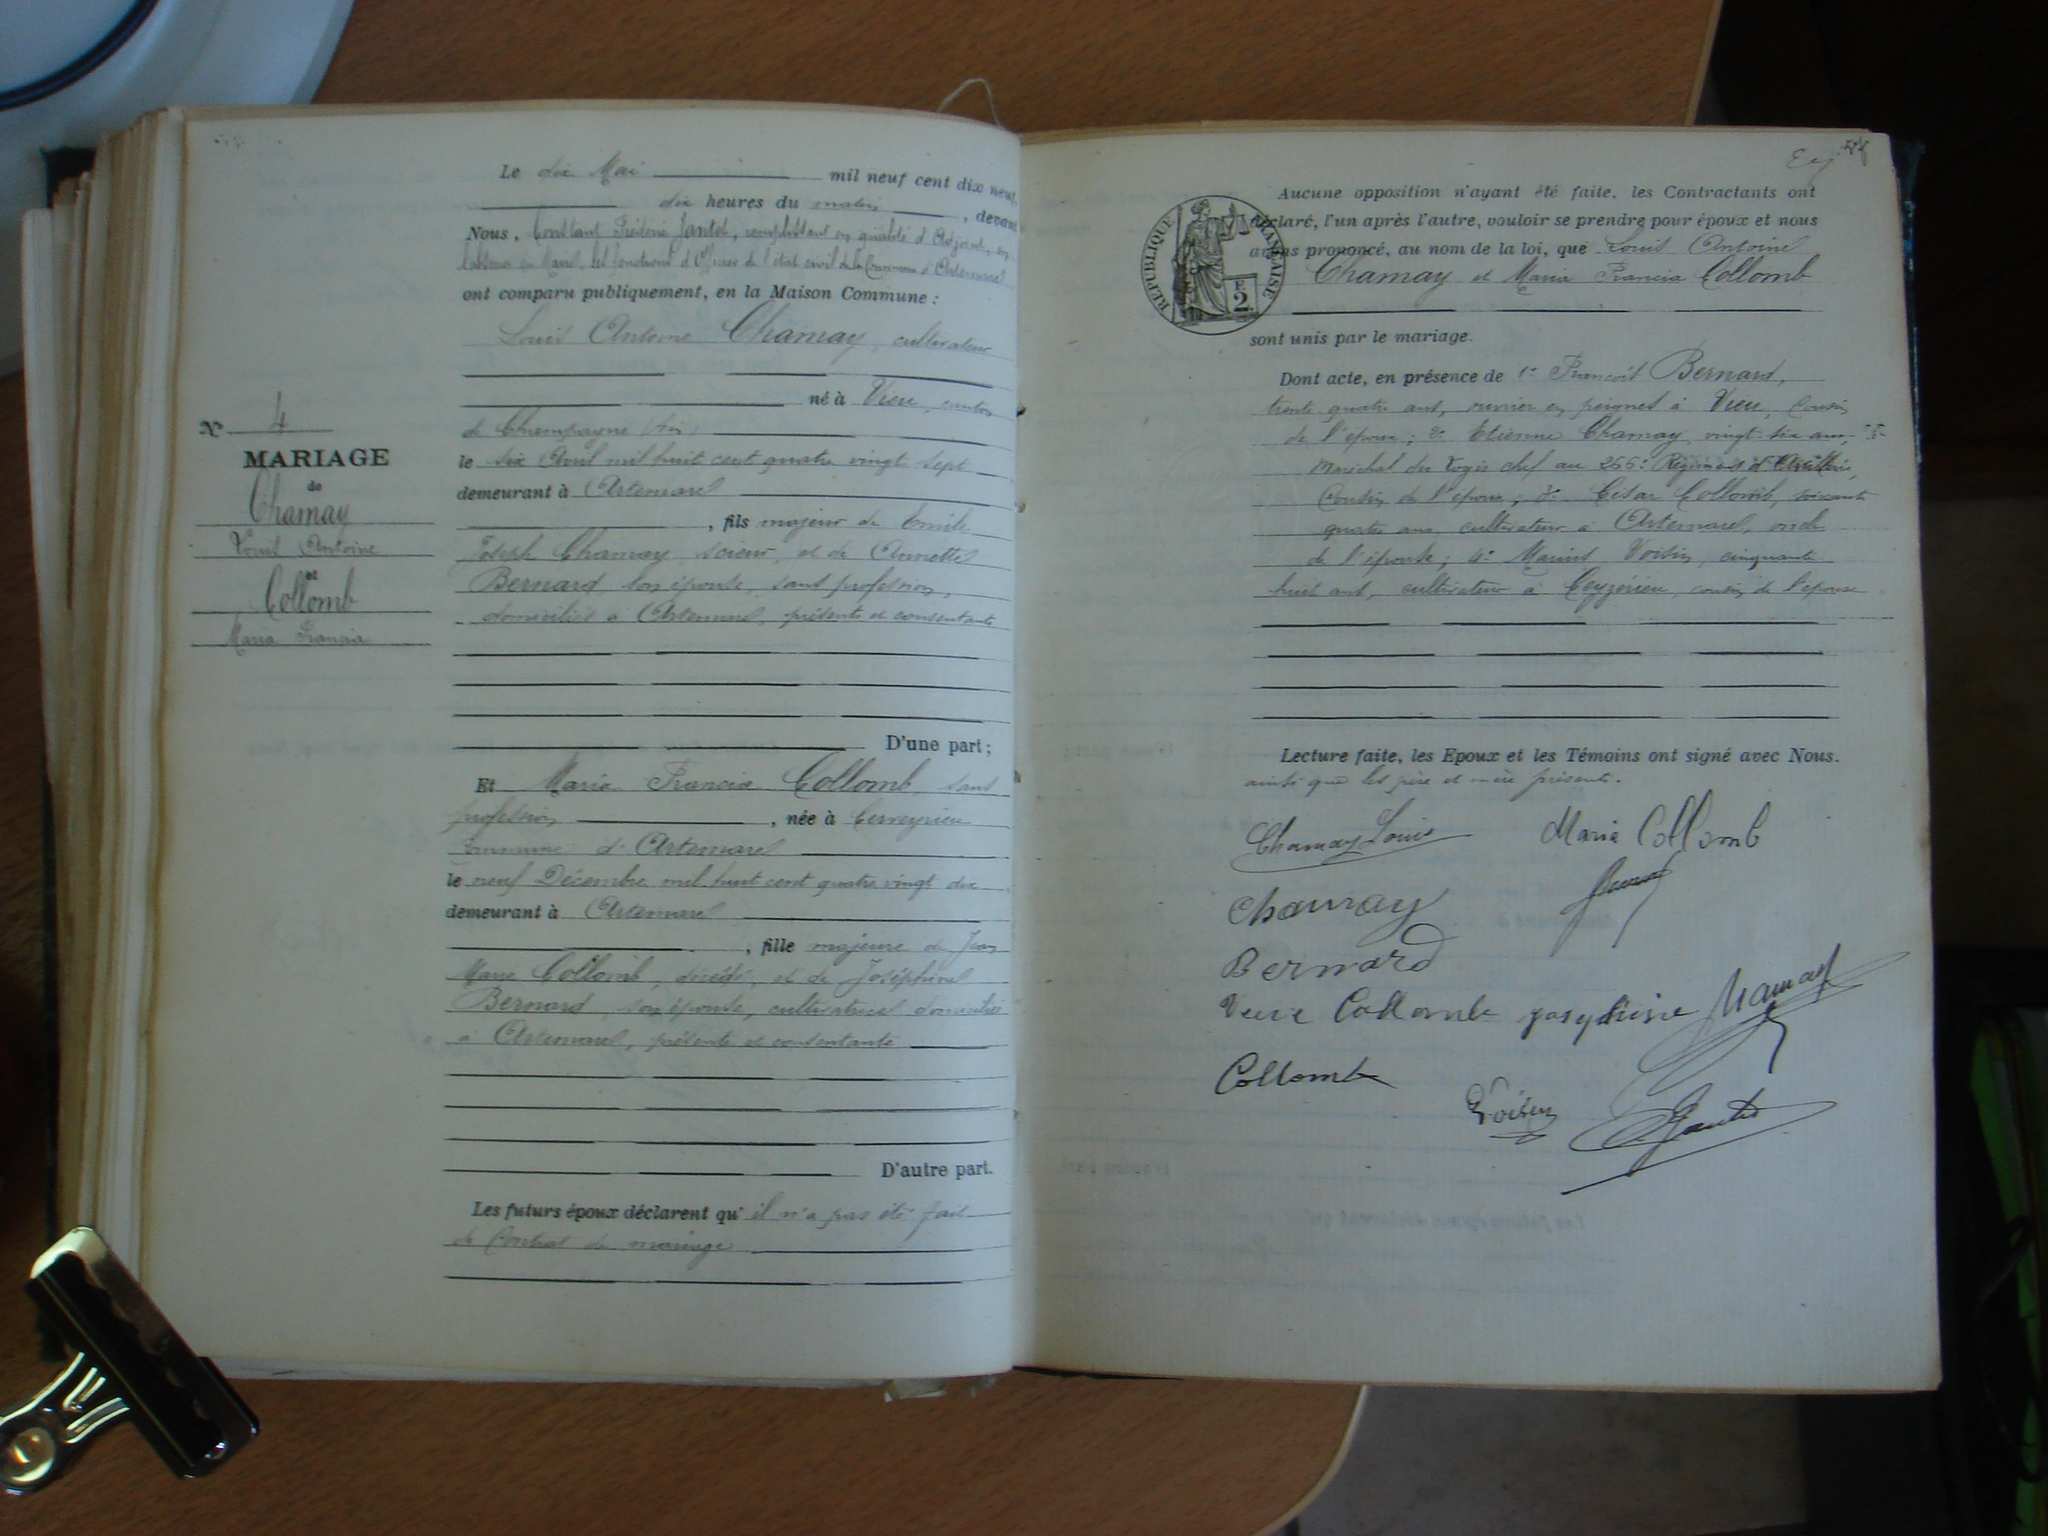 N° 4
MARIAGE
de
Chamay
Louis Antoine
et
Collomb
Maria Francia
Le dix Mai mil neuf cent dix neuf
dix heures du matin, devant
Nous, Constant Frédéric Jantet, remplissant en qualité d'Adjoint,
les fonctions d'Officier de l'état civil de la Commune d'Artemarel
ont comparu publiquement, en la Maison Commune :
Louis Antoine Chamay, cultivateur
né à Vieu, canton
de Champagne (Ain)
le six Avril mil huit cent quatre vingt sept
demeurant à Artemarel
, fils majeur de Emile
Joseph Chamay, scieur, et de Annette
Bernard, son épouse, sans profession,
domiciliés à Artemarel, présents et consentants
D'une part ;
Et Maria Francia Collomb, sans
profession, née à Cerveyrieu
Commune d'Artemarel
le neuf Décembre mil huit cent quatre vingt dix
demeurant à Artemarel
, fille majeure de Jean
Marie Collomb, décédé, et de Joséphine
Bernard, son épouse, cultivatrice domiciliée
à Artemarel, présente et consentante
D'autre part.
Les futurs époux déclarent qu'il n'a pas été fait
de Contrat de mariage
RÉPUBLIQUE FRANÇAISE
E
2
Aucune opposition n'ayant été faite, les Contractants ont
déclaré, l'un après l'autre, vouloir se prendre pour époux et nous
avons prononcé, au nom de la loi, que Louis Antoine
Chamay et Maria Francia Collomb
sont unis par le mariage.
Dont acte, en présence de 1° François Bernard,
trente quatre ans, ouvrier en peignes à Vieu, cousin
de l'époux ; 2° Etienne Chamay, vingt six ans,
Maréchal des Logis chef au 266e Régiment d'Artillerie,
Cousin de l'époux ; 3° César Collomb, soixante
quatre ans, cultivateur à Artemarel, oncle
de l'épouse ; 4° Marius Voisin, cinquante
huit ans, cultivateur à Ceyzérieu, cousin de l'épouse
Lecture faite, les Epoux et les Témoins ont signé avec Nous.
ainsi que les père et mère présents.
Chamay Louis Maria Collomb
Chamay
Bernard
Veuve Collomb josephine Chamay
Collomb
Voisin Jantet